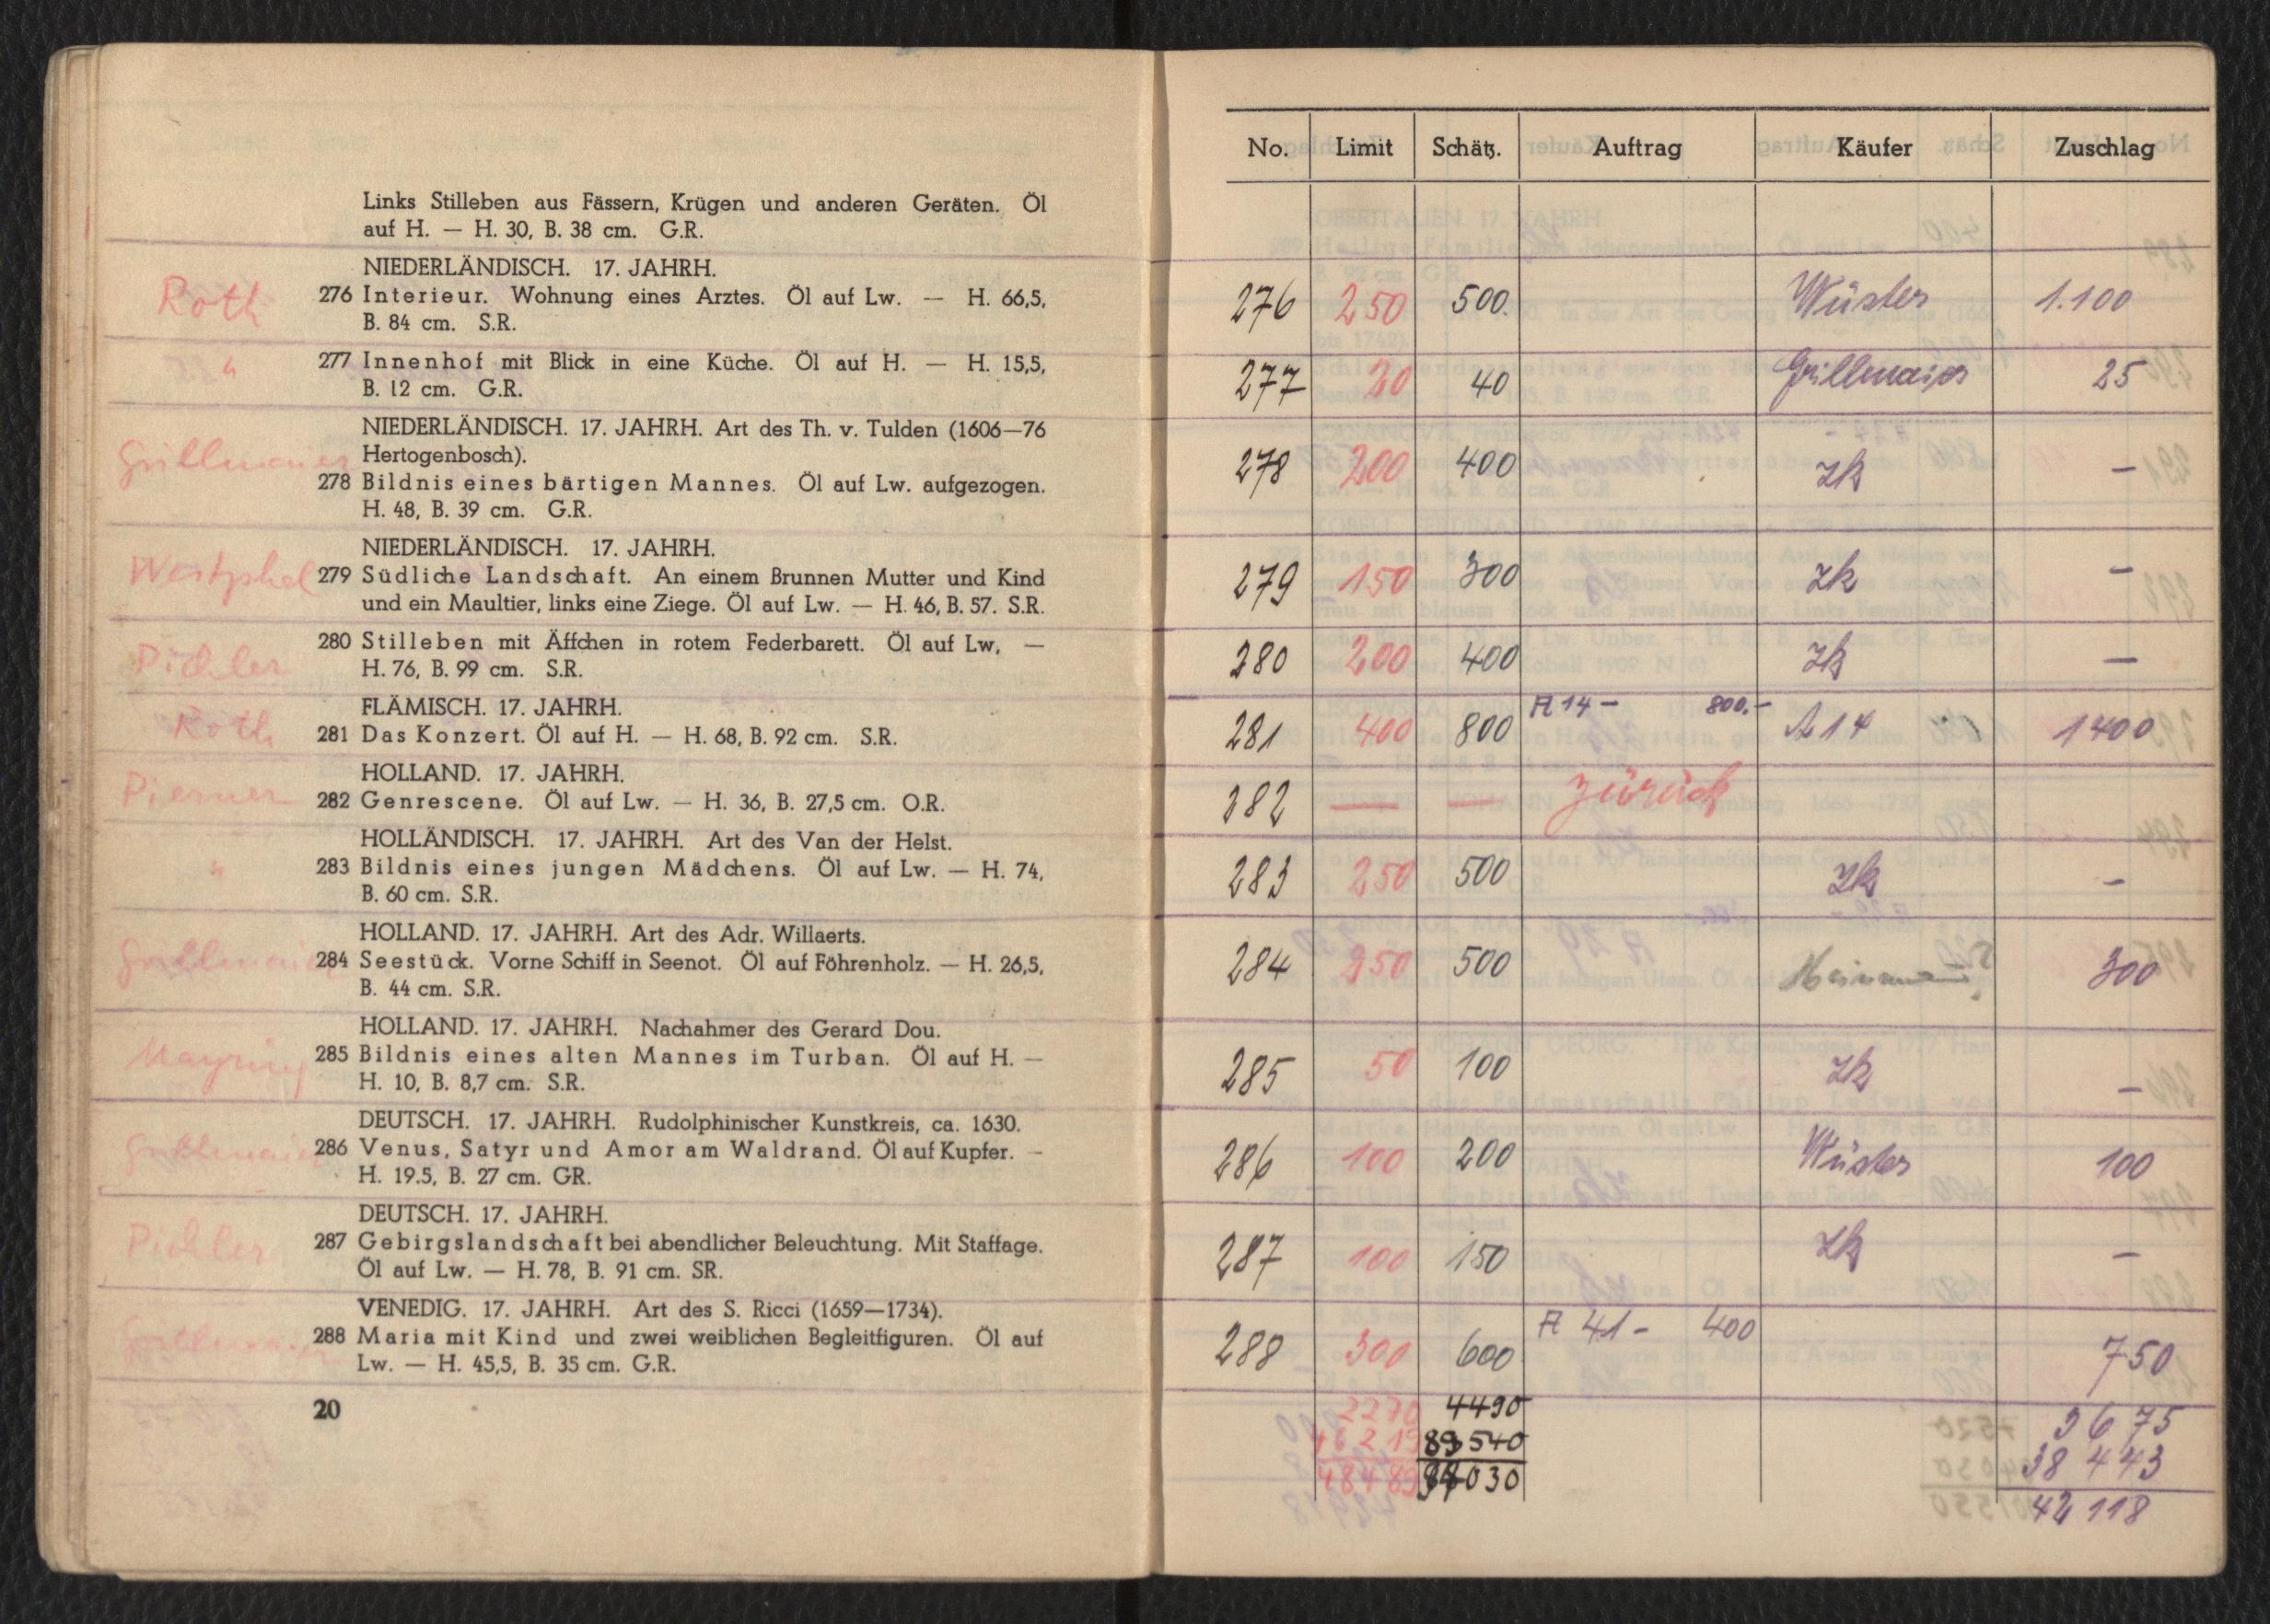 Links Stilleben aus Fässern, Krügen und anderen Geräten. Öl
auf H. — H. 30, B. 38 cm. G.R.
NIEDERLÄNDISCH. 17. JAHRH.
Roth 276 Interieur. Wohnung eines Arztes. Öl auf Lw. — H. 66,5,
B. 84 cm. S.R.
" 277 Innenhof mit Blick in eine Küche. Öl auf H. — H. 15,5,
B. 12 cm. G.R.
NIEDERLÄNDISCH. 17. JAHRH. Art des Th. v. Tulden (1606—76
Grillmaier Hertogenbosch).
278 Bildnis eines bärtigen Mannes. Öl auf Lw. aufgezogen.
H. 48, B. 39 cm. G.R.
NIEDERLÄNDISCH. 17. JAHRH.
Westphal 279 Südliche Landschaft. An einem Brunnen Mutter und Kind
und ein Maultier, links eine Ziege. Öl auf Lw. — H. 46, B. 57. S.R.
Pichler 280 Stilleben mit Äffchen in rotem Federbarett. Öl auf Lw, —
H. 76, B. 99 cm. S.R.
FLÄMISCH. 17. JAHRH.
Roth 281 Das Konzert. Öl auf H. — H. 68, B. 92 cm. S.R.
HOLLAND. 17. JAHRH.
282 Genrescene. Öl auf Lw. — H. 36, B. 27,5 cm. O.R.
HOLLÄNDISCH. 17. JAHRH. Art des Van der Helst.
" 283 Bildnis eines jungen Mädchens. Öl auf Lw. — H. 74,
B. 60 cm. S.R.
HOLLAND. 17. JAHRH. Art des Adr. Willaerts.
Grillmaier 284 Seestück. Vorne Schiff in Seenot. Öl auf Föhrenholz. — H. 26,5,
B. 44 cm. S.R.
HOLLAND. 17. JAHRH. Nachahmer des Gerard Dou.
Mayring 285 Bildnis eines alten Mannes im Turban. Öl auf H. —
H. 10, B. 8,7 cm. S.R.
DEUTSCH. 17. JAHRH. Rudolphinischer Kunstkreis, ca. 1630.
Grillmaier 286 Venus, Satyr und Amor am Waldrand. Öl auf Kupfer. —
H. 19.5, B. 27 cm. GR.
DEUTSCH. 17. JAHRH.
Pichler 287 Gebirgslandschaft bei abendlicher Beleuchtung. Mit Staffage.
Öl auf Lw. — H. 78, B. 91 cm. SR.
VENEDIG. 17. JAHRH. Art des S. Ricci (1659—1734).
Grillmaier 288 Maria mit Kind und zwei weiblichen Begleitfiguren. Öl auf
Lw. — H. 45,5, B. 35 cm. G.R.
20
No. Limit Schätz. Auftrag Käufer Zuschlag
276 250 500. Wüster 1.100
277 20 40 Grillmaier 25
278 200 400 Zk —
279 150 300 Zk —
280 200 400 Zk —
281 400 800 A 14 — 800.— A 14 1400
282 — — zurück
283 250 500 Zk —
284 250 500 300
285 50 100 Zk —
286 100 200 Wüster 100
287 100 150 Zk —
288 300 600 A 41 — 400 750
2270 4490 3675
46219 89540 38 443
48489 030 42 118